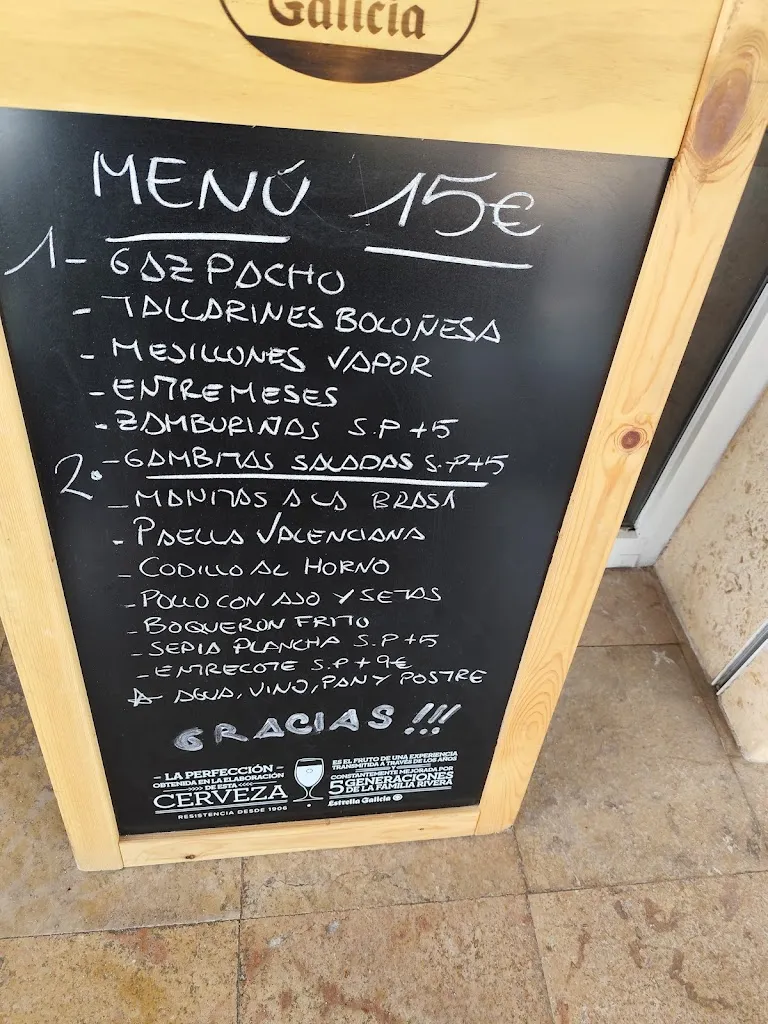 Galicia
MENÚ 15€
1- GAZPACHO
- TALLARINES BOLOÑESA
- MEJILLONES VAPOR
- ENTREMESES
- ZAMBURIÑAS S.P +5
- GAMBITAS SALADAS S.P+5
2.
- MANITAS A LA BRASA
- PAELLA VALENCIANA
- CODILLO AL HORNO
- POLLO CON AJO Y SETAS
- BOQUERON FRITO
- SEPIA PLANCHA S.P+5
- ENTRECOTE S.P +9€
A- AGUA, VINO, PAN Y POSTRE
GRACIAS !!!
- LA PERFECCIÓN -
OBTENIDA EN LA ELABORACIÓN
>>>> DE ESTA <<<<
CERVEZA
RESISTENCIA DESDE 1906
ES EL FRUTO DE UNA EXPERIENCIA
TRANSMITIDA A TRAVÉS DE LOS AÑOS
Y
CONSTANTEMENTE MEJORADA POR
5 GENERACIONES
DE LA FAMILIA RIVERA
Estrella Galicia